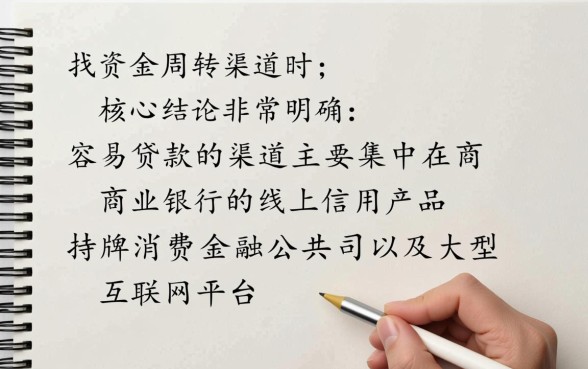 找资金周转渠道时；
核心结论非常明确：
容易贷款的渠道主要集中在商
商业银行的线上信用产品
持牌消费金融公共司以及大型
互联网平台